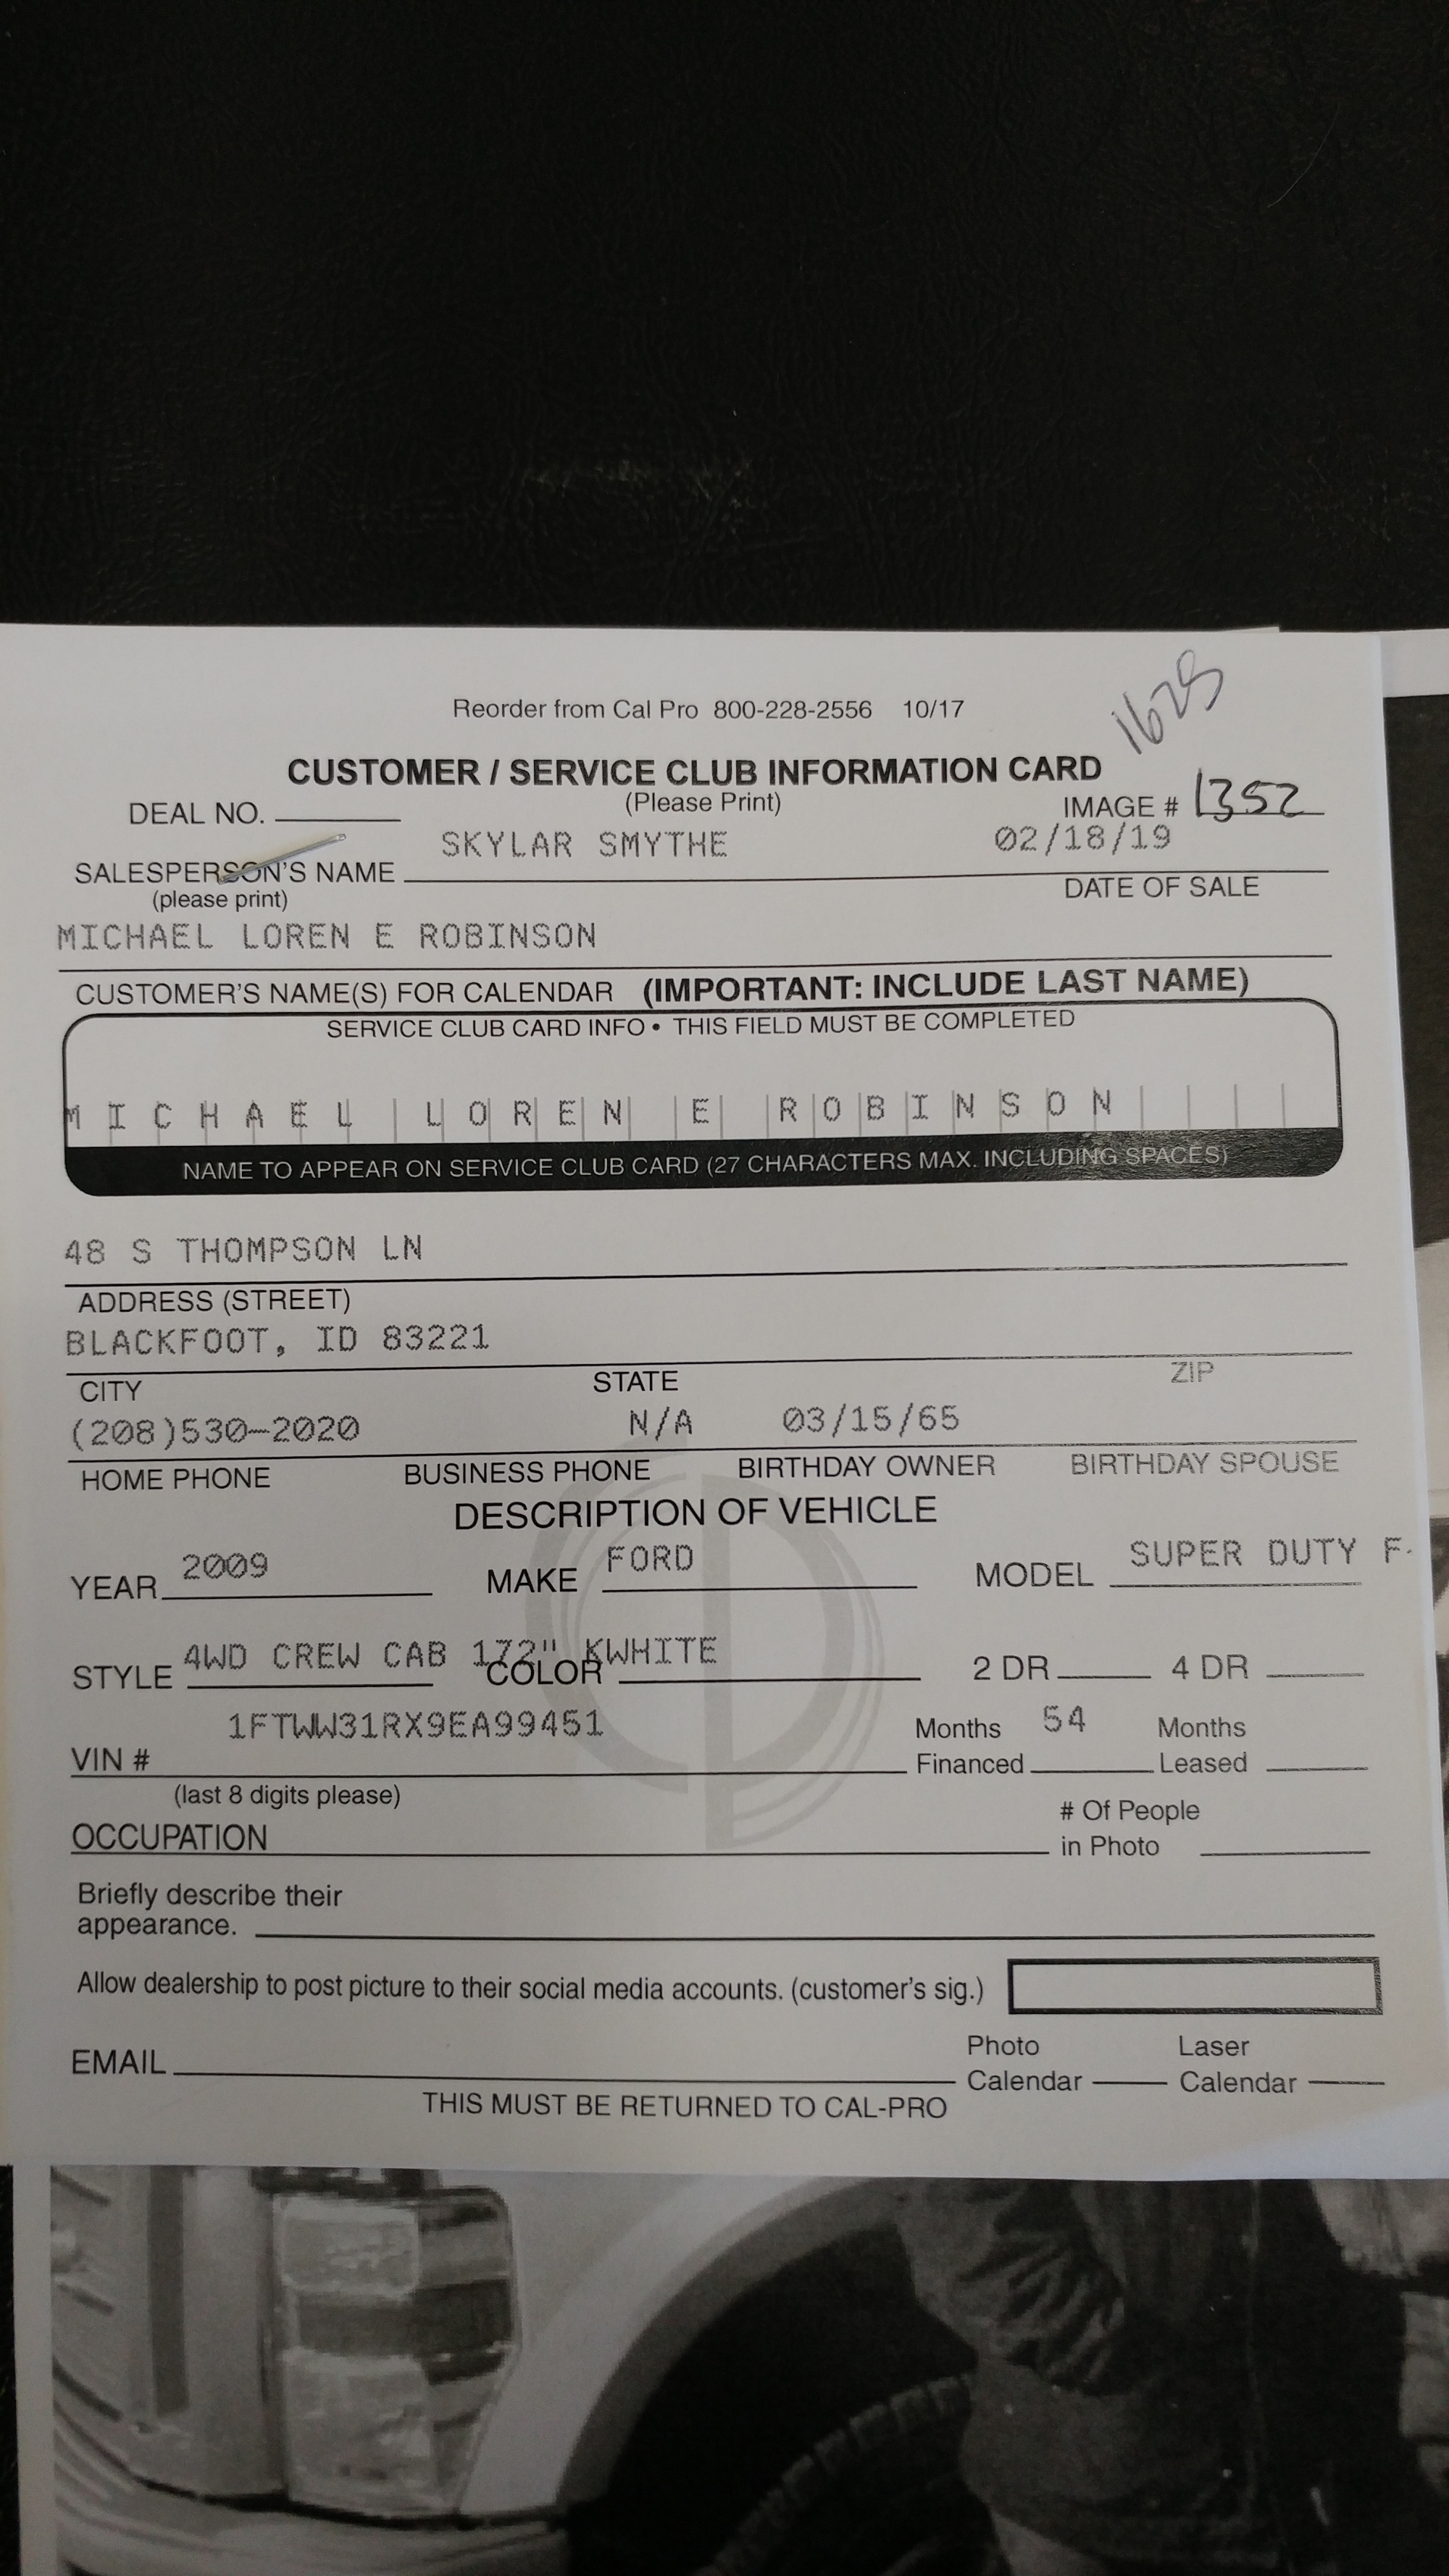 1625
Reorder from Cal Pro 800-228-2556 10/17
CUSTOMER / SERVICE CLUB INFORMATION CARD
(Please Print)
DEAL NO.
IMAGE # 1352
SKYLAR SMYTHE 02/18/19
SALESPERSON'S NAME
(please print)
DATE OF SALE
MICHAEL LOREN E ROBINSON
CUSTOMER'S NAME(S) FOR CALENDAR (IMPORTANT: INCLUDE LAST NAME)
SERVICE CLUB CARD INFO • THIS FIELD MUST BE COMPLETED
MICHAEL LOREN E ROBINSON
NAME TO APPEAR ON SERVICE CLUB CARD (27 CHARACTERS MAX. INCLUDING SPACES)
48 S THOMPSON LN
ADDRESS (STREET)
BLACKFOOT, ID 83221
CITY STATE ZIP
(208)530-2020 N/A 03/15/65
HOME PHONE BUSINESS PHONE BIRTHDAY OWNER BIRTHDAY SPOUSE
DESCRIPTION OF VEHICLE
YEAR 2009 MAKE FORD MODEL SUPER DUTY F-
STYLE 4WD CREW CAB 172" KWHITE
COLOR 2 DR 4 DR
1FTWW31RX9EA99451
VIN #
(last 8 digits please)
Months Financed 54 Months Leased
OCCUPATION
# Of People in Photo
Briefly describe their
appearance.
Allow dealership to post picture to their social media accounts. (customer's sig.)
EMAIL
Photo Calendar Laser Calendar
THIS MUST BE RETURNED TO CAL-PRO